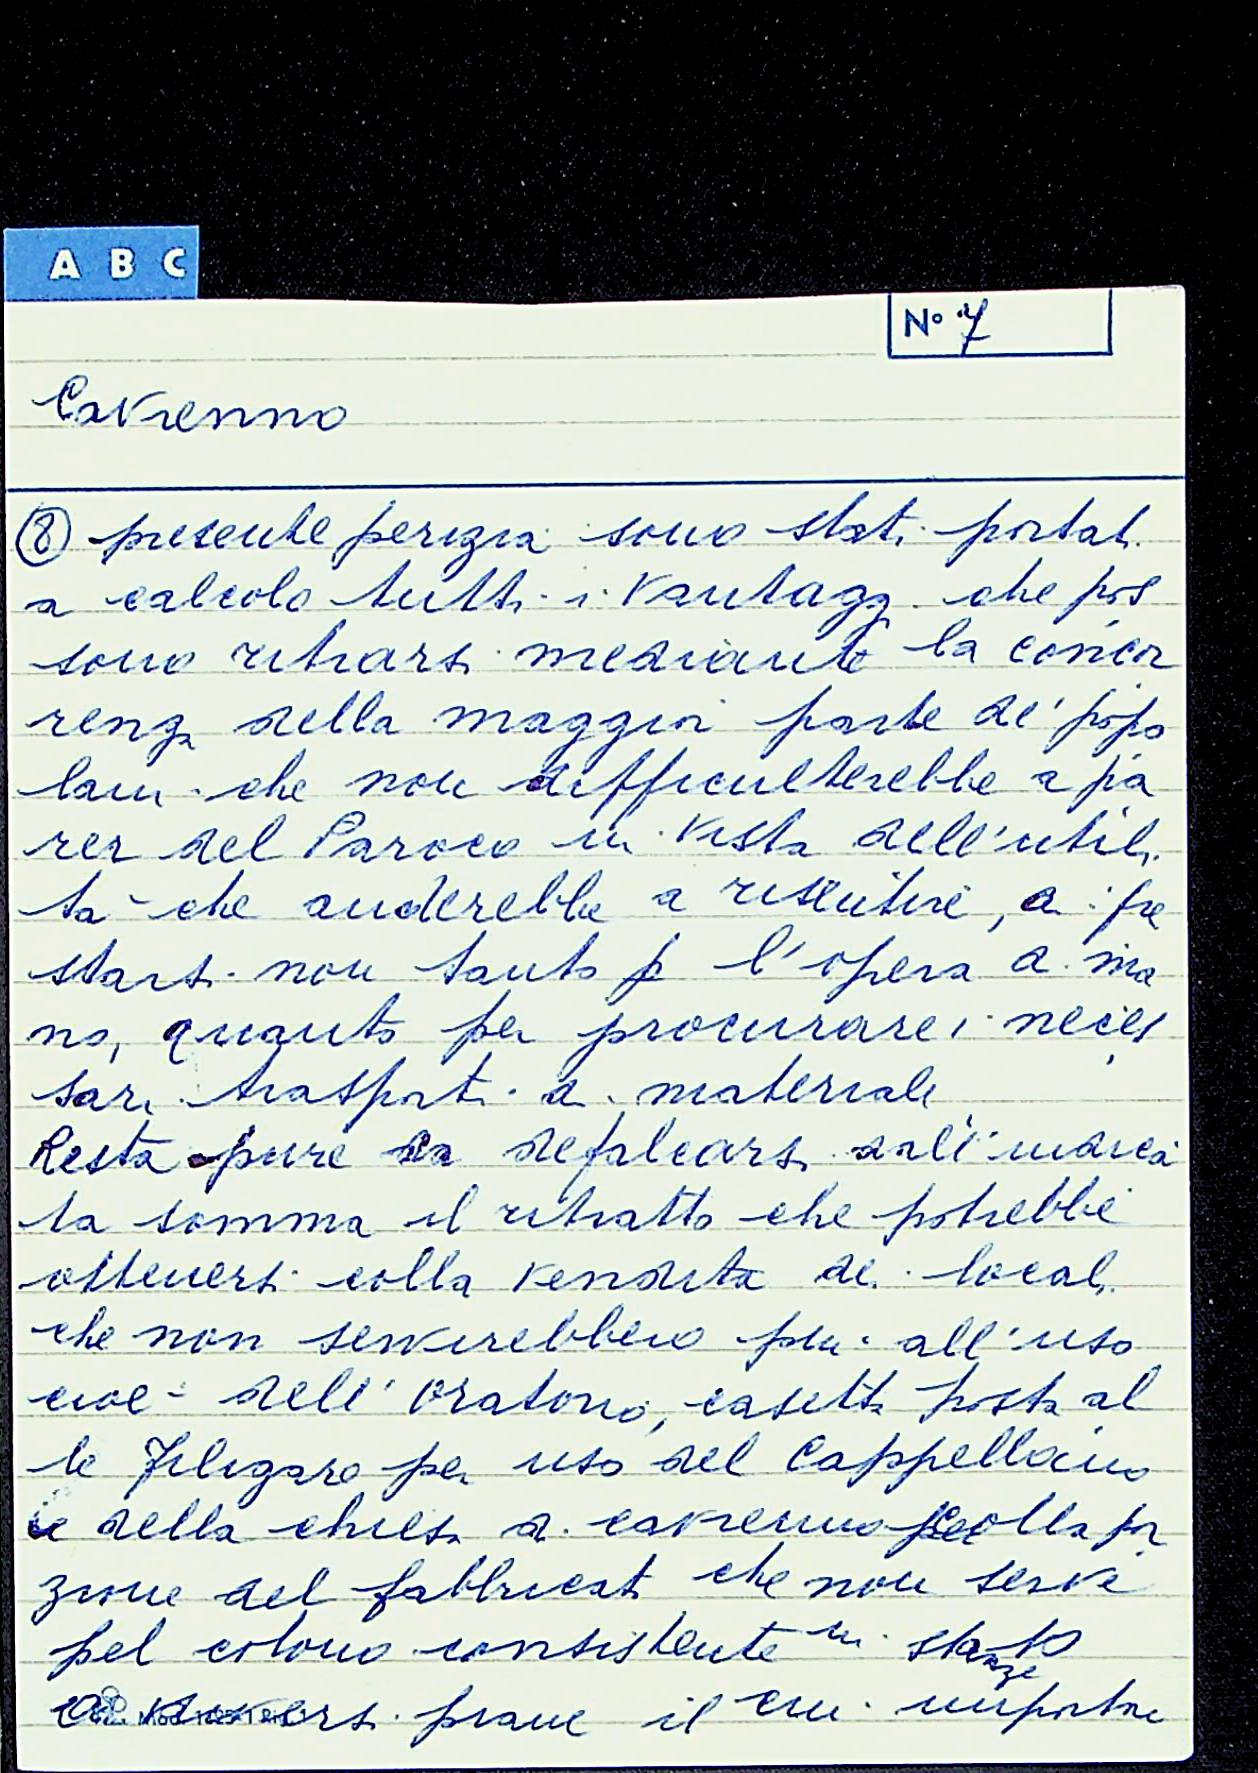 A B C
N° 7
Cavrenno
⑧ presente perizia sono stati portati
a calcolo tutti i vantaggi che pos
sono ritrarsi mediante la concor
renza della maggior parte de' popo
lani che non difficulterebbe a pa
rer del Paroco in vista dell'utili
tà che anderebbe a risentire, a pre
starsi non tanto p l'opera a ma
no, quanto per procurare i neces
sari trasporti di materiale
Resta pure da defalcarsi dall'indica
ta somma il ritratto che potrebbe
ottenersi colla vendita dei locali
che non servirebbero più all'uso
cioè dell'oratorio, casetta posta al
le Filigare per uso del Cappellano
e della chiesa di Cavrenno colla por
zione del fabbricati che non serve
pel colono consistente in stanze 10
diversi piane il cui importare